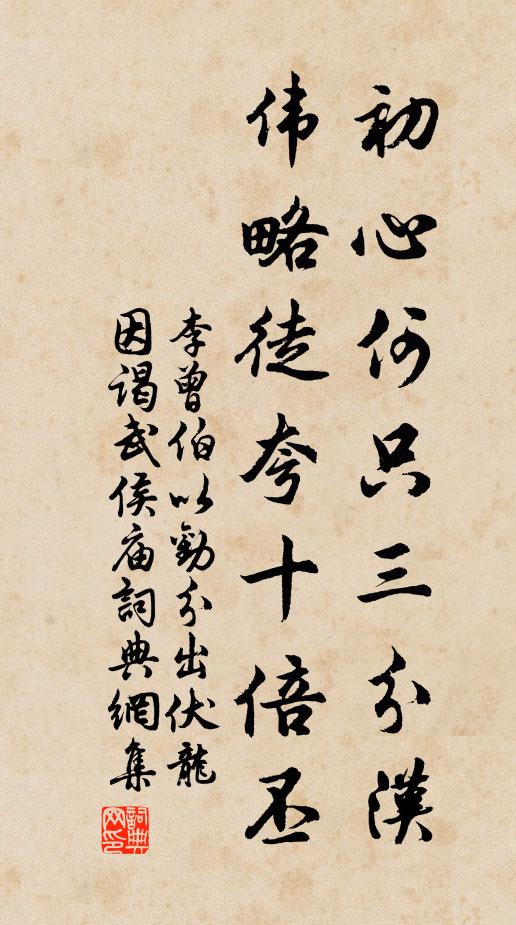 初心何只三分漢
伟略徒夸十倍丕
李曾伯以勸分出伏龍
因謁武侯庙詞典網集
詞典网印